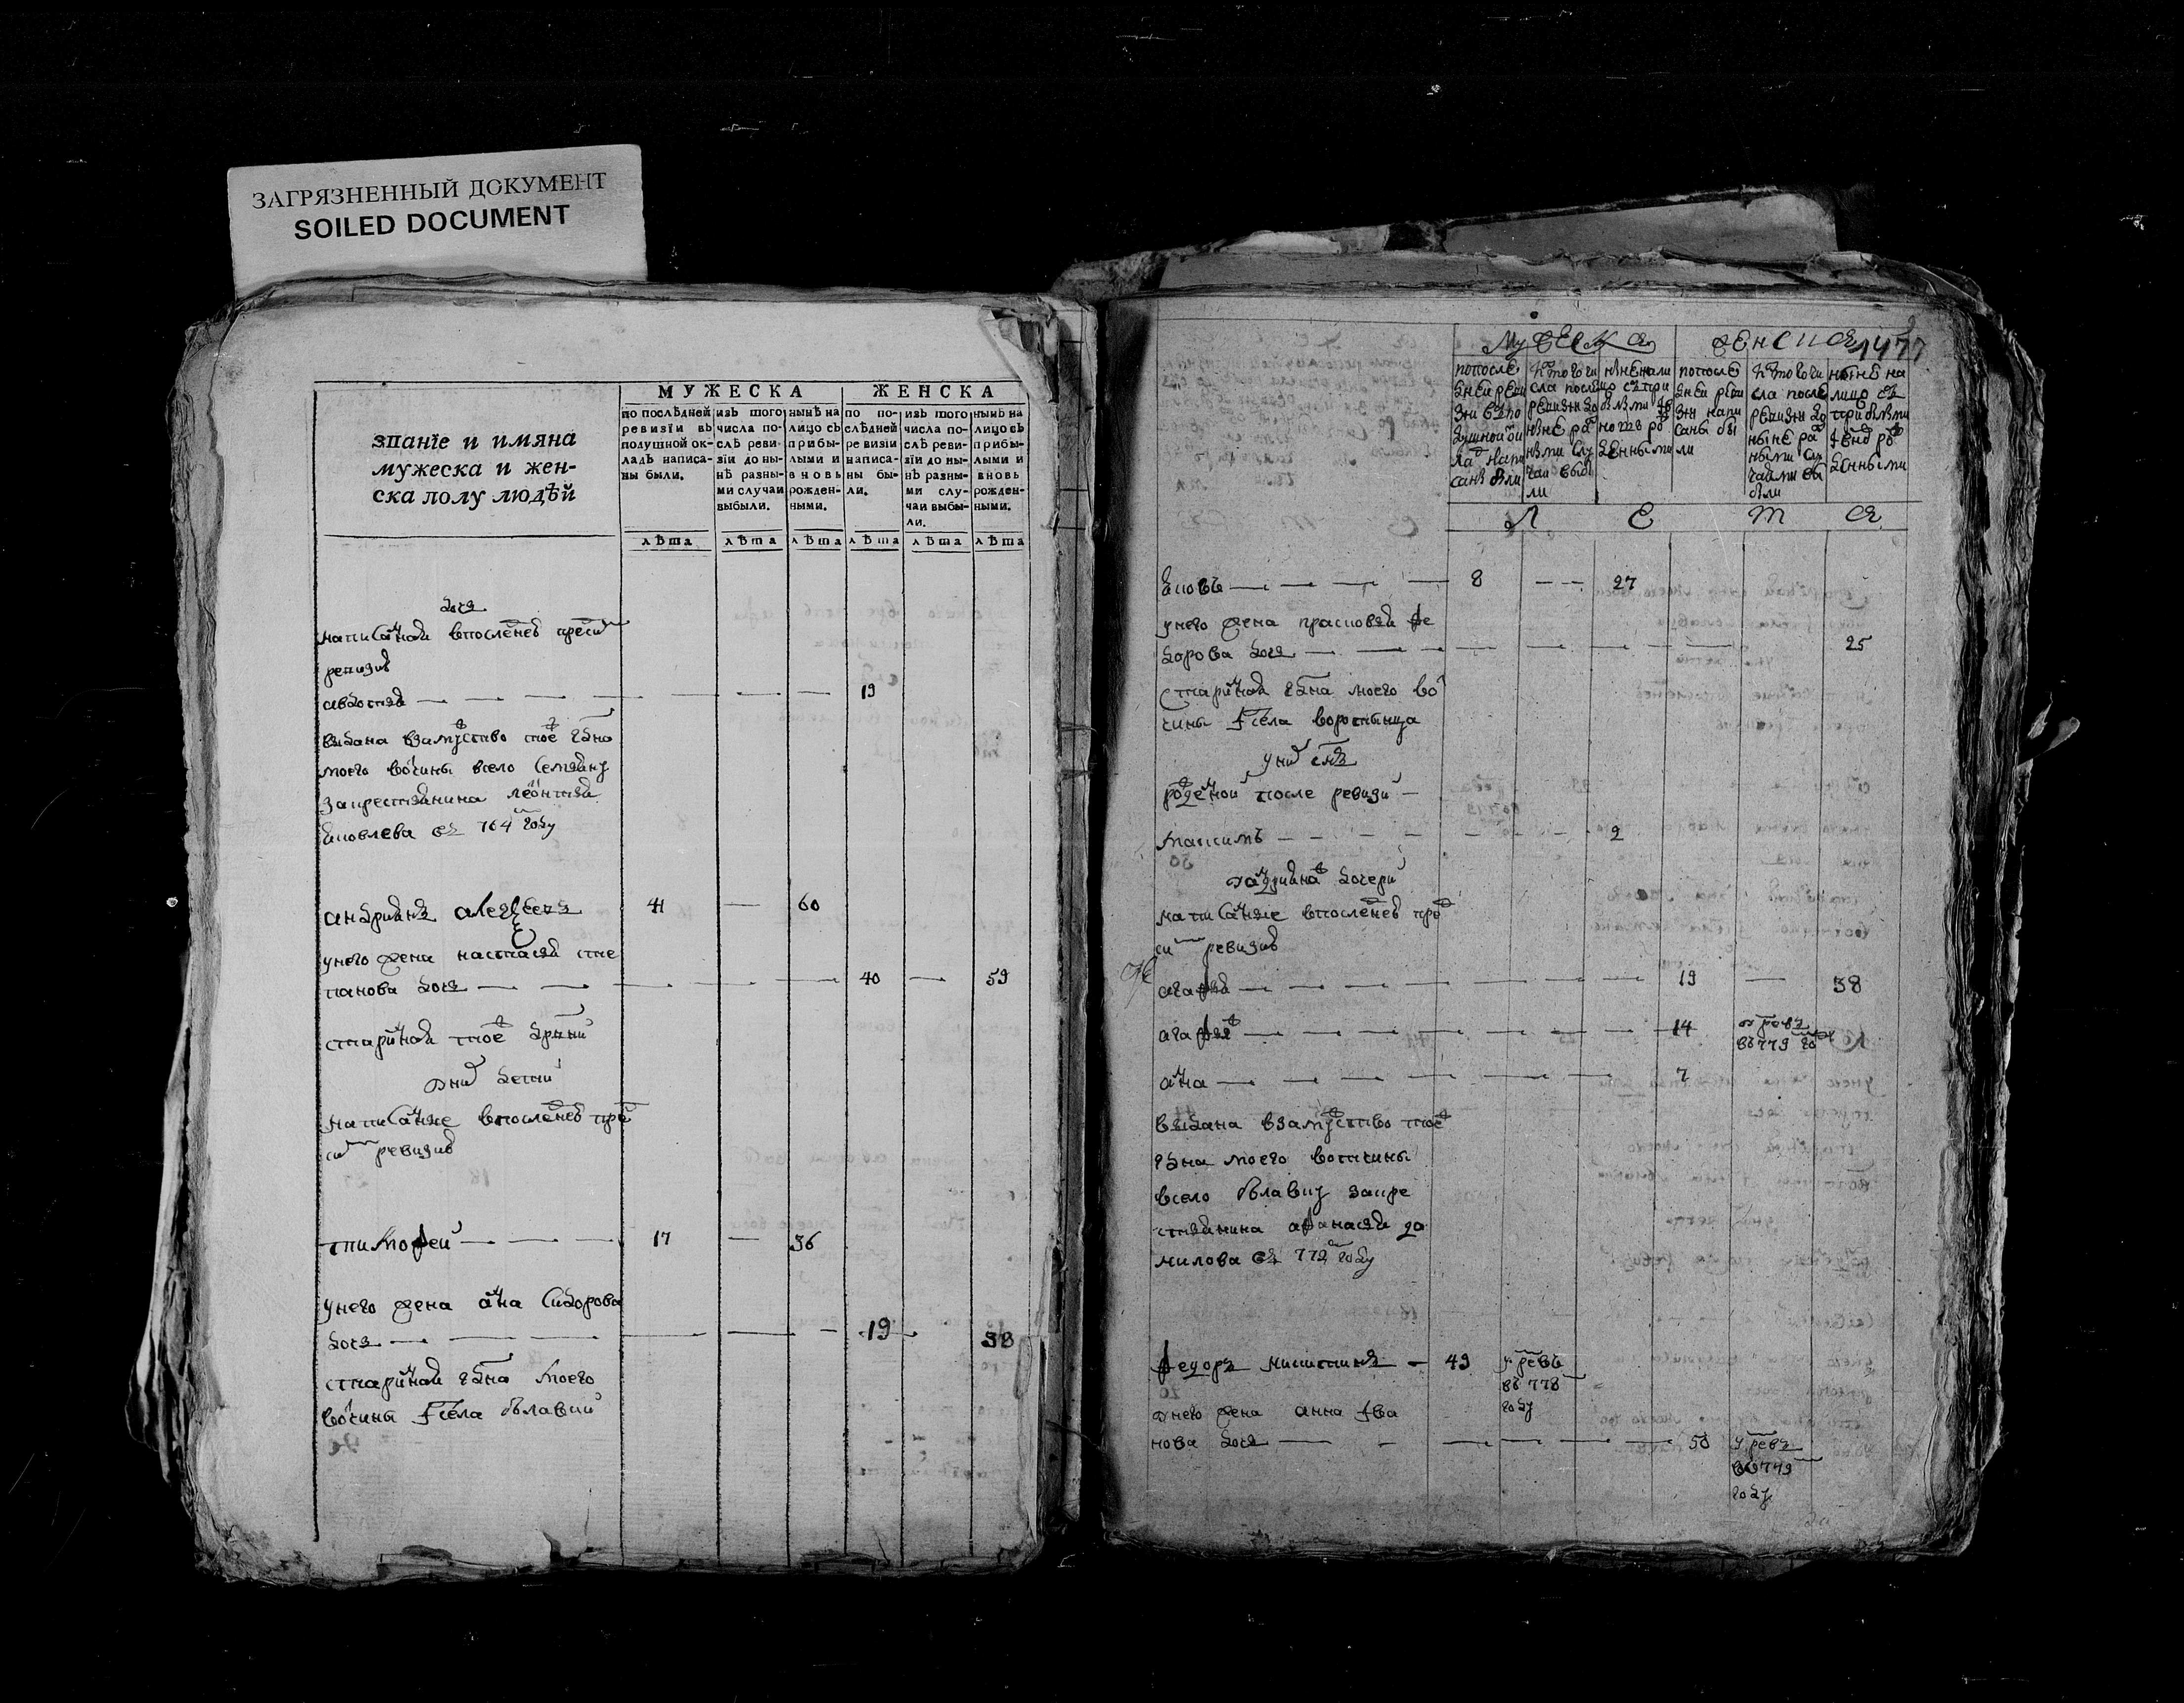 ЗАГРЯЗНЕННЫЙ ДОКУМЕНТ
SOILED DOCUMENT
званїе и имяна
мужеска и жен-
ска полу людѣй
МУЖЕСКА
ЖЕНСКА
по послѣдней
ревизїи въ
подушной ок-
ладъ написа-
ны были.
изъ того
числа по-
слѣ реви-
зїи до ны-
нѣ разны-
ми случаи
выбыли.
нынѣ на
лицо съ
прибы-
лыми и
вновь
рожден-
ными.
по по-
слѣдней
ревизїи
написа-
ны бы-
ли.
изъ того
числа по-
слѣ реви-
зїи до ны-
нѣ разны-
ми слу-
чаи выбы-
ли.
нынѣ на
лицо съ
прибы-
лыми и
вновь
рожден-
ными.
лѣта лѣта лѣта лѣта лѣта лѣта
дочь
написаная впоследнеи пред
ревизии
авдотья — 19
выдана взамуство тое
моего вочины всело
закрестьянина леонтья
яковлева въ 764 году
андриянъ алексеевъ 41 — 60
унего жена настасья сте
панова дочь — 40 — 59
старинная тое
униx дети
написание впоследнеи пре
ревизии
тимофеи — 17 — 36
унего жена ана сидорова
дочь — 19 38
старинная моего
вочины села
мужеска
женска
1477
попосле
дней реви
зии въ по
душной ок
лад напи
саны были
ис того чи
сла после
ревизии до
ныне раз
ными слу
чаи выбы
ли
ныне нали
цо с при
былыми и
вновь ро
жденными
попосле
дней реви
зии напи
саны бы
ли
ис того чи
сла после
ревизии до
ныне раз
ными слу
чаями вы
были
ныне на
лицо съ
прибылыми
и вновь ро
жденными
Л е т а
яковъ — 8 — 27
унего жена прасковья фе
дорова дочь — 25
старинная моего во
чины села воротынца
униx сынъ
рожденои после ревизи —
максимъ — 2
уандрияна дочери
написание впоследнеи пре
ревизии
агафья — 19 — 38
агафья — 14 умре
въ 779 го
ана — 7
выдана взамуство тое
моего вотчины
всело закре
стьянина афанасья да
нилова въ 772 году
федоръ никитинъ — 49 умре
въ 778
году
унего жена анна ива
нова дочь — 50 умре
въ 779
году